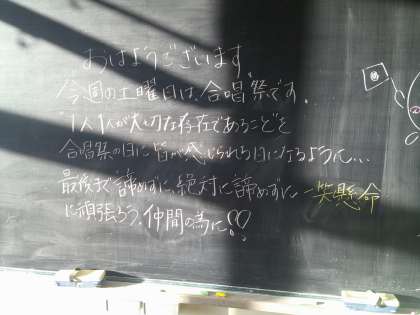 おはようございます
今週の土曜日は、合唱祭です。
1人1人が大切な存在であることを
合唱祭の日に皆が感じられる日になるように…
最後まで諦めずに、絶対に諦めずに一笑懸命
に頑張ろう。仲間の為に!!